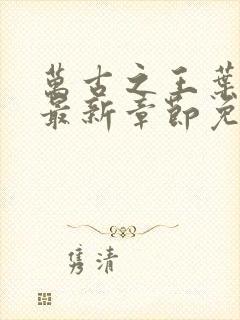 萬古之王葉
最新章節免
隽清